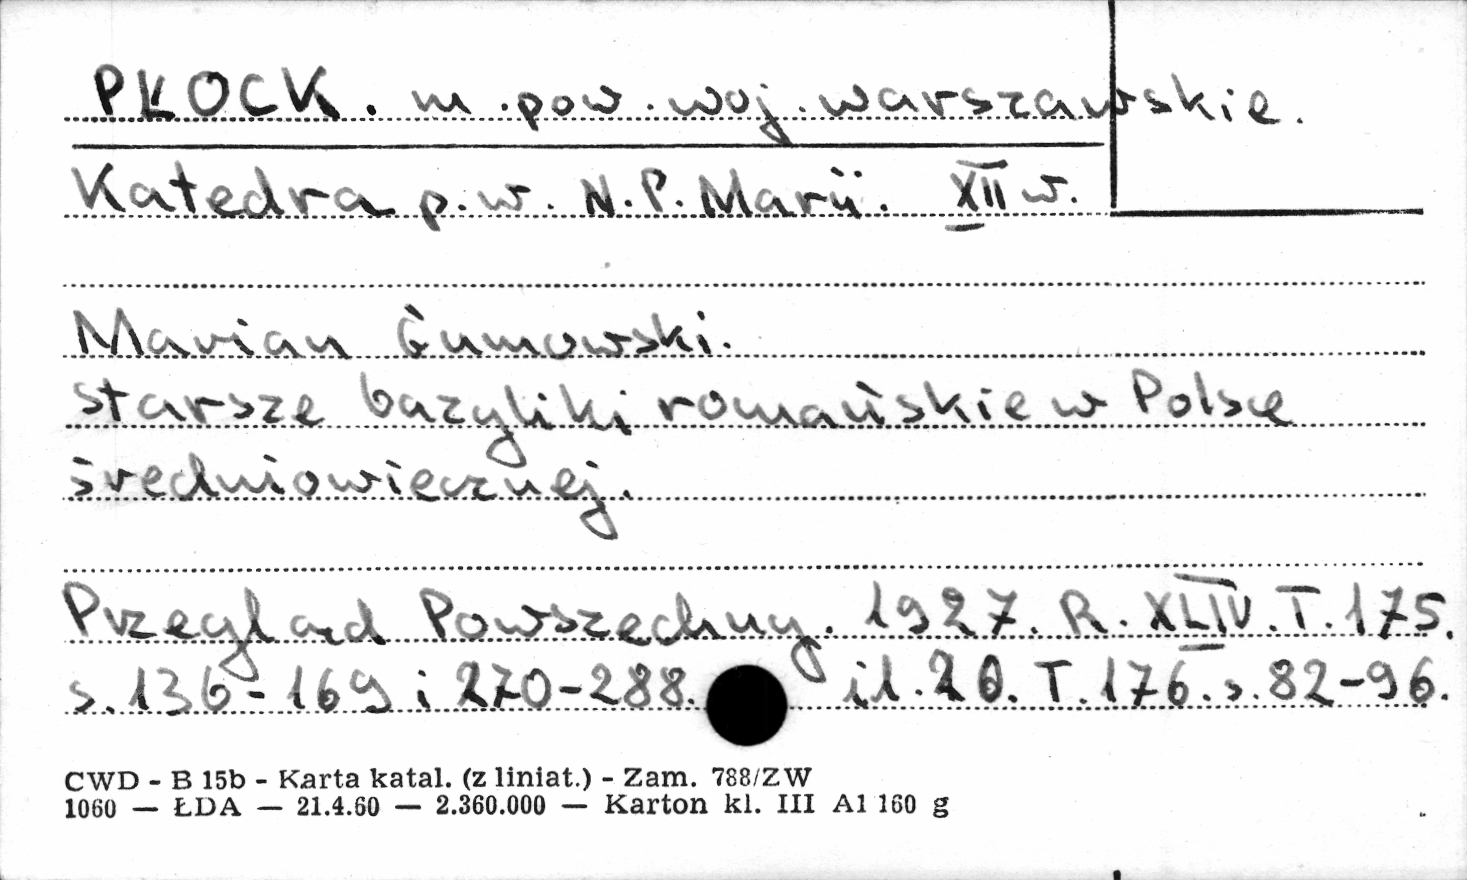 PŁOCK. m. pow. woj. warszawskie.
Katedra p.w. N.P. Marii. XII w.
Marian Gumowski.
starsze bazyliki romańskie w Polsce
średniowiecznej.
Przegląd Powszechny. 1927. R. XLIV. T. 175.
s. 136-169 i 270-288. il. 20. T. 176. s. 82-96.
CWD - B 15b - Karta katal. (z liniat.) - Zam. 788/ZW
1060 — ŁDA — 21.4.60 — 2.360.000 — Karton kl. III A1 160 g